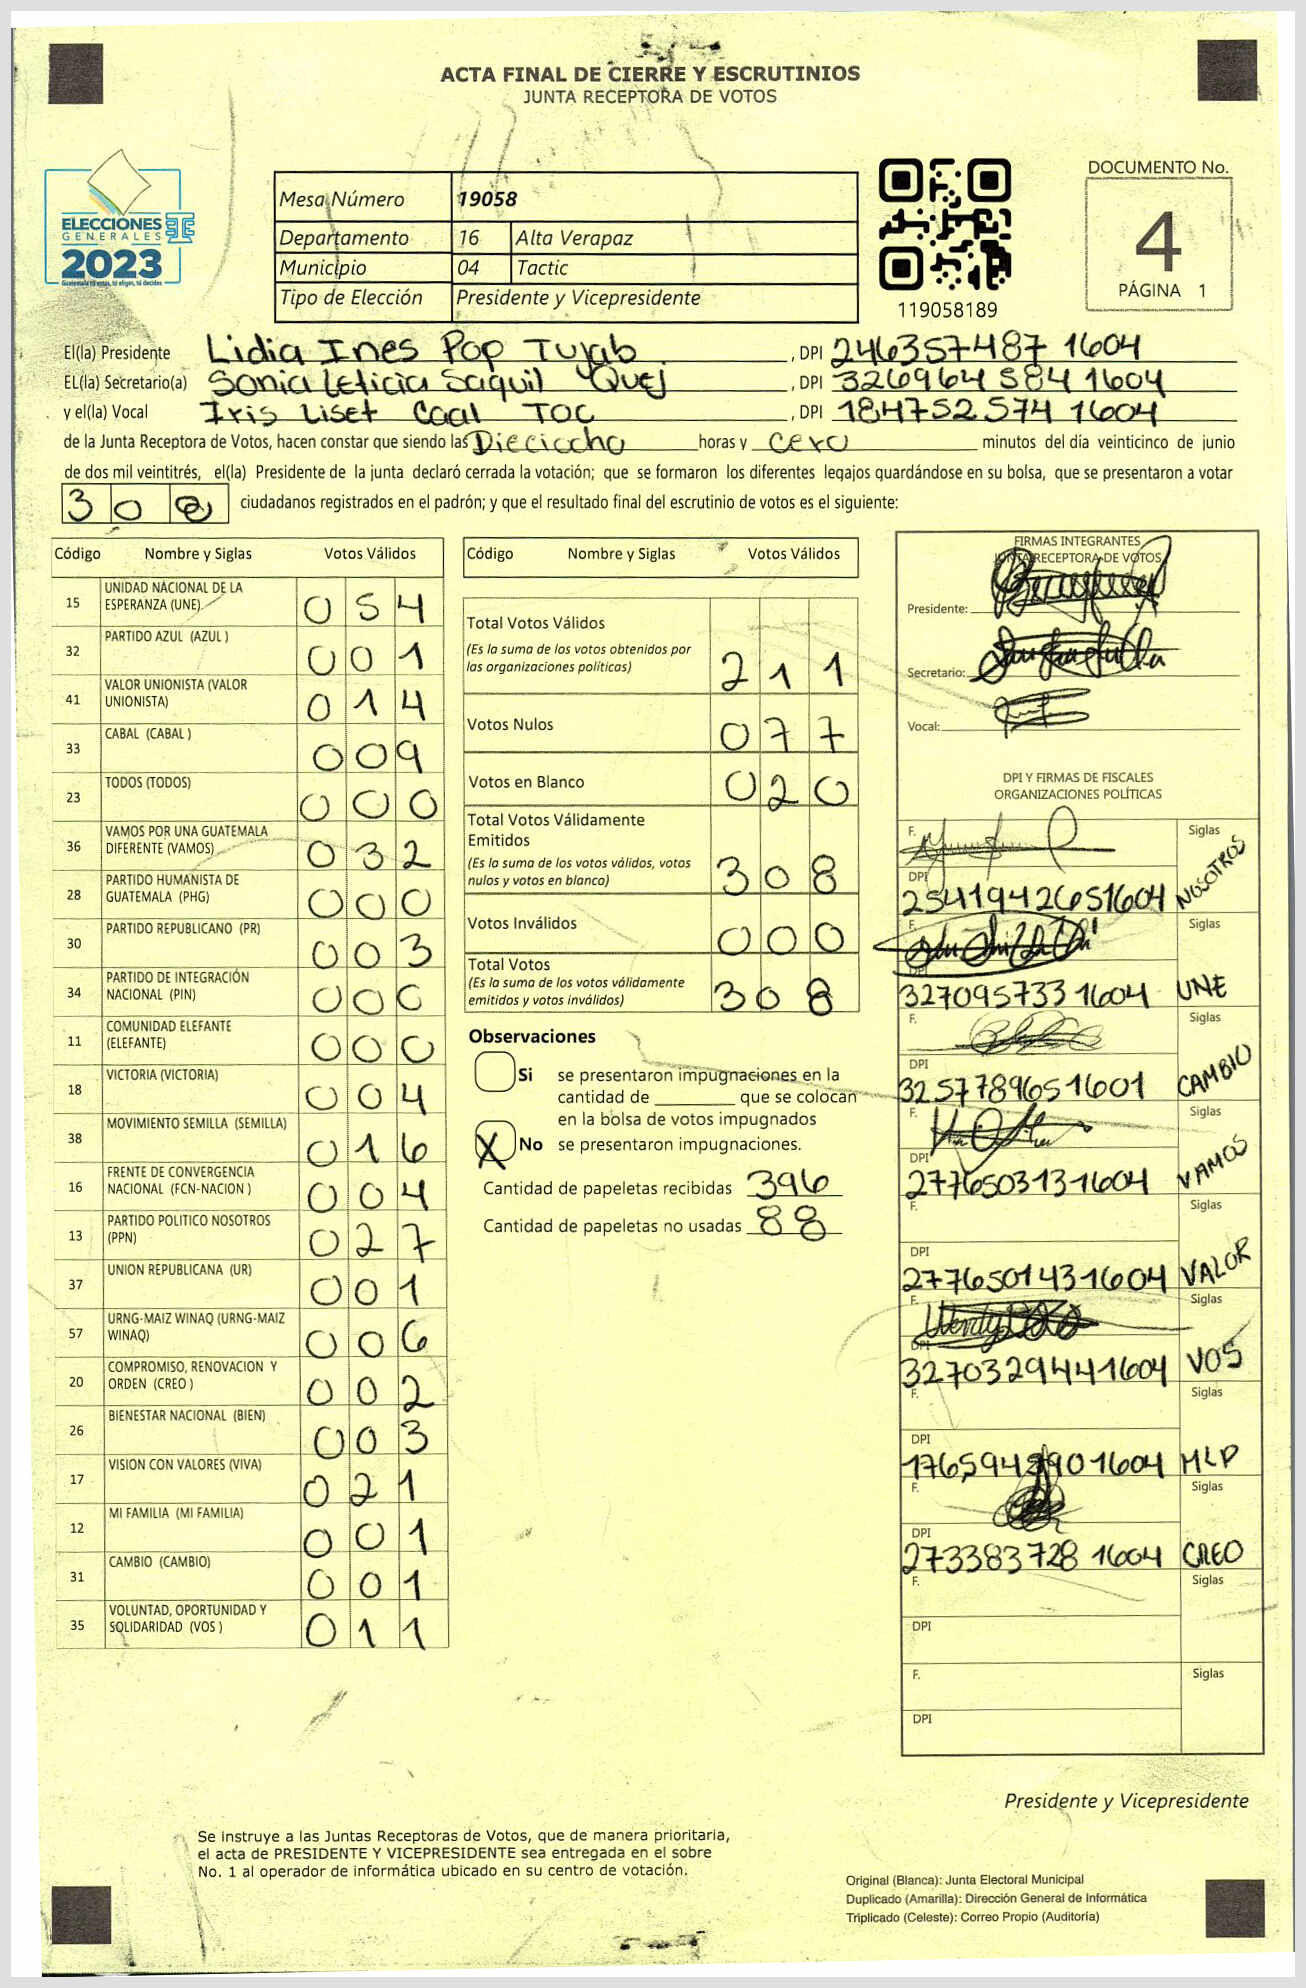 ACTA FINAL DE CIERRE Y ESCRUTINIOS
JUNTA RECEPTORA DE VOTOS
ELECCIONES
GENERALES
2023
Mesa Número 19058
Departamento 16 Alta Verapaz
Municipio 04 Tactic
Tipo de Elección Presidente y Vicepresidente
119058189
DOCUMENTO No.
4
PÁGINA 1
El(la) Presidente Lidia Ines Pop Tujab, DPI 246357487 1604
EL(la) Secretario(a) Sonia Leticia Saquil Quej, DPI 326964584 1604
y el(la) Vocal Iris Liset Caal TOC, DPI 184752574 1604
de la Junta Receptora de Votos, hacen constar que siendo las Dieciocho horas y cero minutos del día veinticinco de junio
de dos mil veintitrés, el(la) Presidente de la junta declaró cerrada la votación; que se formaron los diferentes legajos guardándose en su bolsa, que se presentaron a votar
308 ciudadanos registrados en el padrón; y que el resultado final del escrutinio de votos es el siguiente:
Código Nombre y Siglas Votos Válidos
15 UNIDAD NACIONAL DE LA ESPERANZA (UNE) 054
32 PARTIDO AZUL (AZUL ) 001
41 VALOR UNIONISTA (VALOR UNIONISTA) 014
33 CABAL (CABAL ) 009
23 TODOS (TODOS) 000
36 VAMOS POR UNA GUATEMALA DIFERENTE (VAMOS) 032
28 PARTIDO HUMANISTA DE GUATEMALA (PHG) 000
30 PARTIDO REPUBLICANO (PR) 003
34 PARTIDO DE INTEGRACIÓN NACIONAL (PIN) 000
11 COMUNIDAD ELEFANTE (ELEFANTE) 000
18 VICTORIA (VICTORIA) 004
38 MOVIMIENTO SEMILLA (SEMILLA) 016
16 FRENTE DE CONVERGENCIA NACIONAL (FCN-NACION ) 004
13 PARTIDO POLITICO NOSOTROS (PPN) 027
37 UNION REPUBLICANA (UR) 001
57 URNG-MAIZ WINAQ (URNG-MAIZ WINAQ) 006
20 COMPROMISO, RENOVACION Y ORDEN (CREO ) 002
26 BIENESTAR NACIONAL (BIEN) 003
17 VISION CON VALORES (VIVA) 021
12 MI FAMILIA (MI FAMILIA) 001
31 CAMBIO (CAMBIO) 001
35 VOLUNTAD, OPORTUNIDAD Y SOLIDARIDAD (VOS ) 011
Código Nombre y Siglas Votos Válidos
Total Votos Válidos
(Es la suma de los votos obtenidos por
las organizaciones políticas) 211
Votos Nulos 077
Votos en Blanco 020
Total Votos Válidamente
Emitidos
(Es la suma de los votos válidos, votos
nulos y votos en blanco) 308
Votos Inválidos 000
Total Votos
(Es la suma de los votos válidamente
emitidos y votos inválidos) 308
Observaciones
Si se presentaron impugnaciones en la
cantidad de ________ que se colocan
en la bolsa de votos impugnados
X No se presentaron impugnaciones.
Cantidad de papeletas recibidas 396
Cantidad de papeletas no usadas 88
FIRMAS INTEGRANTES
JUNTA RECEPTORA DE VOTOS
Presidente:
Secretario:
Vocal:
DPI Y FIRMAS DE FISCALES
ORGANIZACIONES POLÍTICAS
F. Siglas
DPI
2541942651604 NOSOTROS
F. Siglas
DPI
327095733 1604 UNE
F. Siglas
DPI
3257789651601 CAMBIO
F. Siglas
DPI
2776503131604 VAMOS
F. Siglas
DPI
2776501431604 VALOR
F. Siglas
DPI
3270329441604 VOS
F. Siglas
DPI
1604 MLP
F. Siglas
DPI
273383728 1604 CREO
F. Siglas
DPI
F. Siglas
DPI
Presidente y Vicepresidente
Se instruye a las Juntas Receptoras de Votos, que de manera prioritaria,
el acta de PRESIDENTE Y VICEPRESIDENTE sea entregada en el sobre
No. 1 al operador de informática ubicado en su centro de votación.
Original (Blanca): Junta Electoral Municipal
Duplicado (Amarilla): Dirección General de Informática
Triplicado (Celeste): Correo Propio (Auditoría)